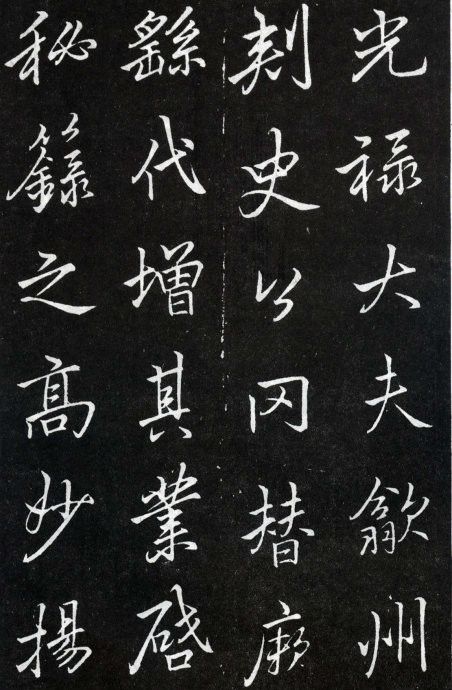 光祿大夫歙州
刺史公冈替厥
繇代增其業啓
秘籙之髙妙揚